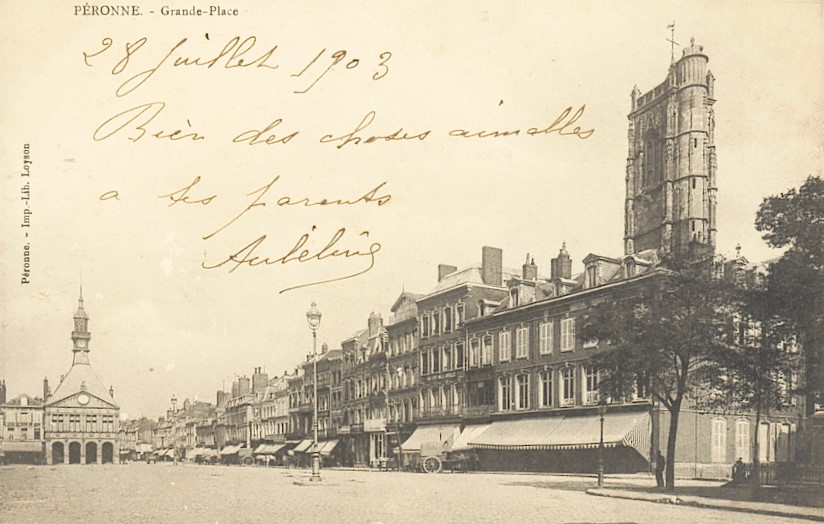 PÉRONNE. - Grande-Place
28 Juillet 1903
Bien des choses aimables
a tes parents
Péronne. - Imp.-Lib. Loyson